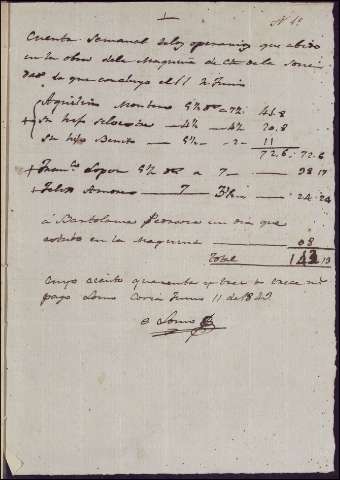 N. 15
Cuenta Semanal de los operarios que abido
en la obra dela Maquina de de la Socie
dad la que concluyo el 11 de Junio
Agustin Montano 5½ ds a 7 r. 41.8
Su hijo Silvestre 4½ 4½ 20.8
Su hijo Benito 5½ 2 11
72.6 72.6
Franco. Lopez 5½ ds a 7 38 17
Felix Amores 7 3½ 24 24
á Bartolome un dia que
estubo en la Maquina 08
Total 143 13
Cuyo ciento quarenta y tres rs trece ms
pago Lomo Coria Junio 11 de 1842
Lomo